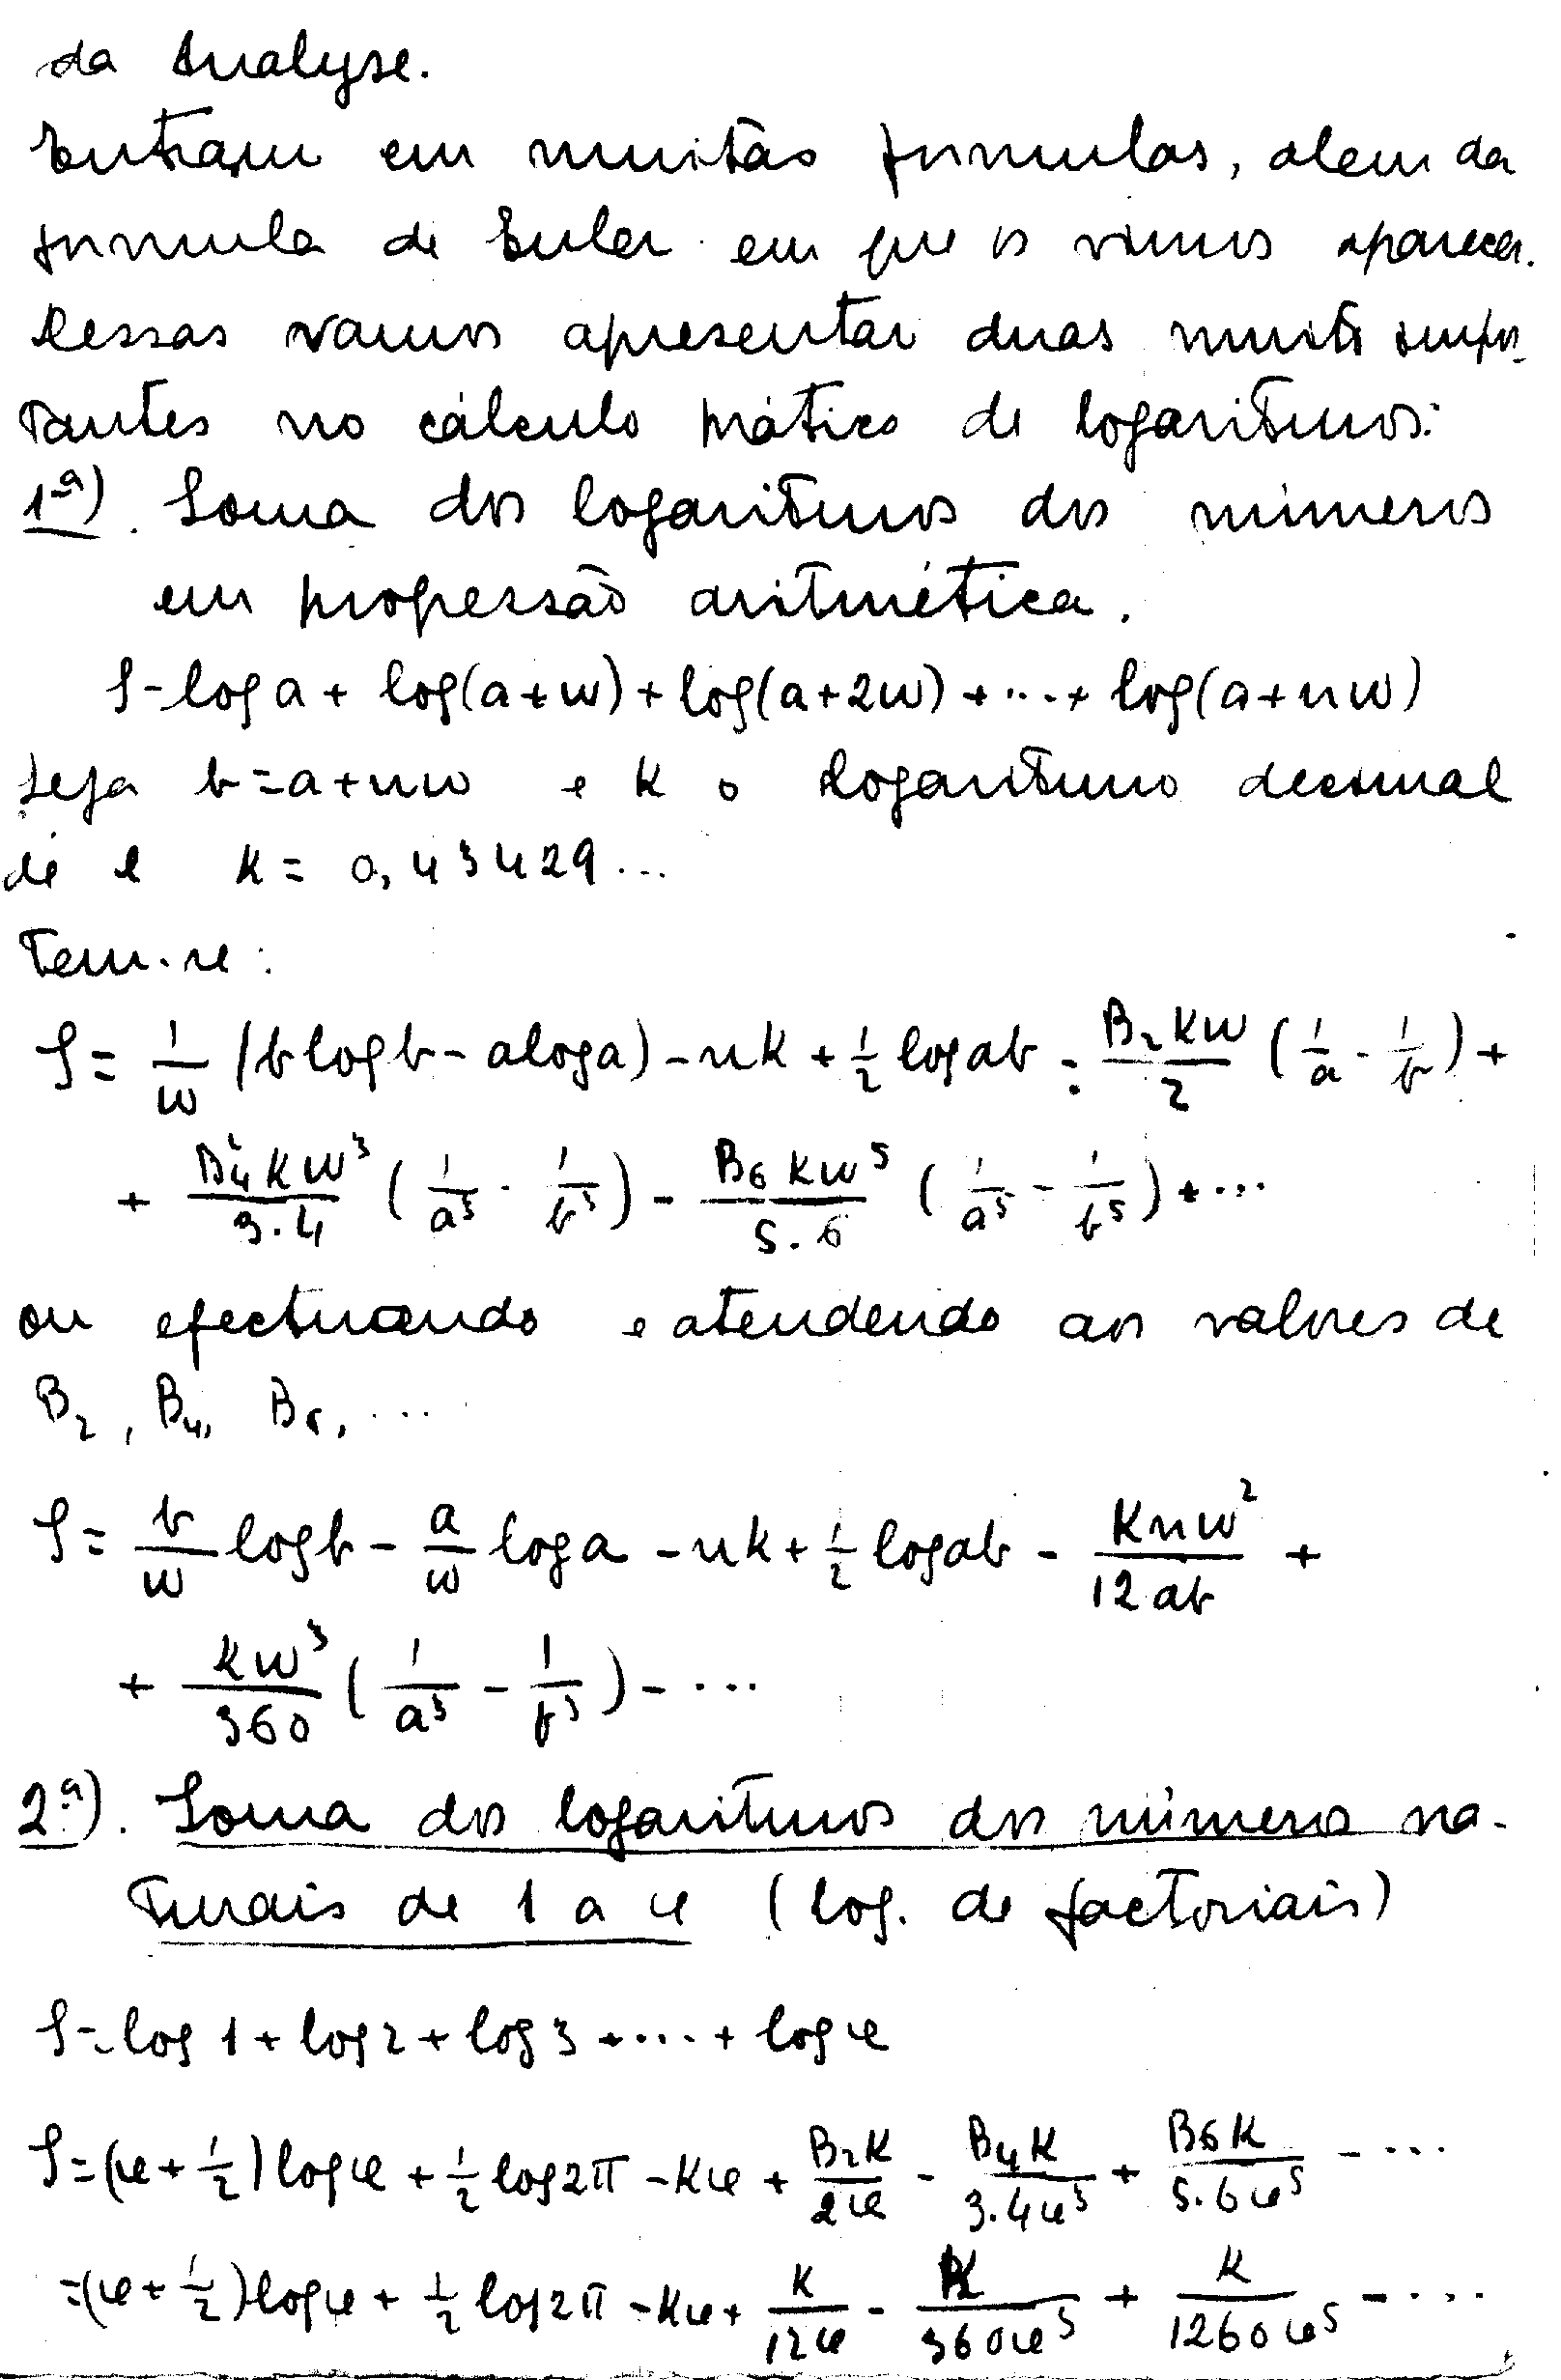 da Analyse.
Entram em muitas formulas, alem da
formula de Euler em que os vimos aparecer.
Dessas vamos apresentar duas muito impor-
tantes no cálculo prático de logaritmos:
1ª). Soma dos logaritmos dos números
em progressão aritmética.
S=log a + log(a+w) + log(a+2w) + ... + log(a+nw)
Seja b=a+nw e K o logaritmo decimal
de e K = 0,43429...
Tem-se:
S = 1/w (b log b - a log a) - nK + 1/2 log ab - B₂Kw/2 (1/a - 1/b) +
+ B₄Kw³/3.4 (1/a³ - 1/b³) - B₆Kw⁵/5.6 (1/a⁵ - 1/b⁵) + ...
ou efectuando e atendendo aos valores de
B₂, B₄, B₆, ...
S = b/w log b - a/w log a - nK + 1/2 log ab - Knw²/12ab +
+ Kw³/360 (1/a³ - 1/b³) - ...
2ª). Soma dos logaritmos dos números na-
turais de 1 a φ (log. de factoriais)
S=log 1 + log 2 + log 3 + ... + log φ
S=(φ + 1/2) log φ + 1/2 log 2π - Kφ + B₂K/2φ - B₄K/3.4φ³ + B₆K/5.6φ⁵ - ...
=(φ + 1/2) log φ + 1/2 log 2π - Kφ + K/12φ - K/360φ³ + K/1260φ⁵ - ....